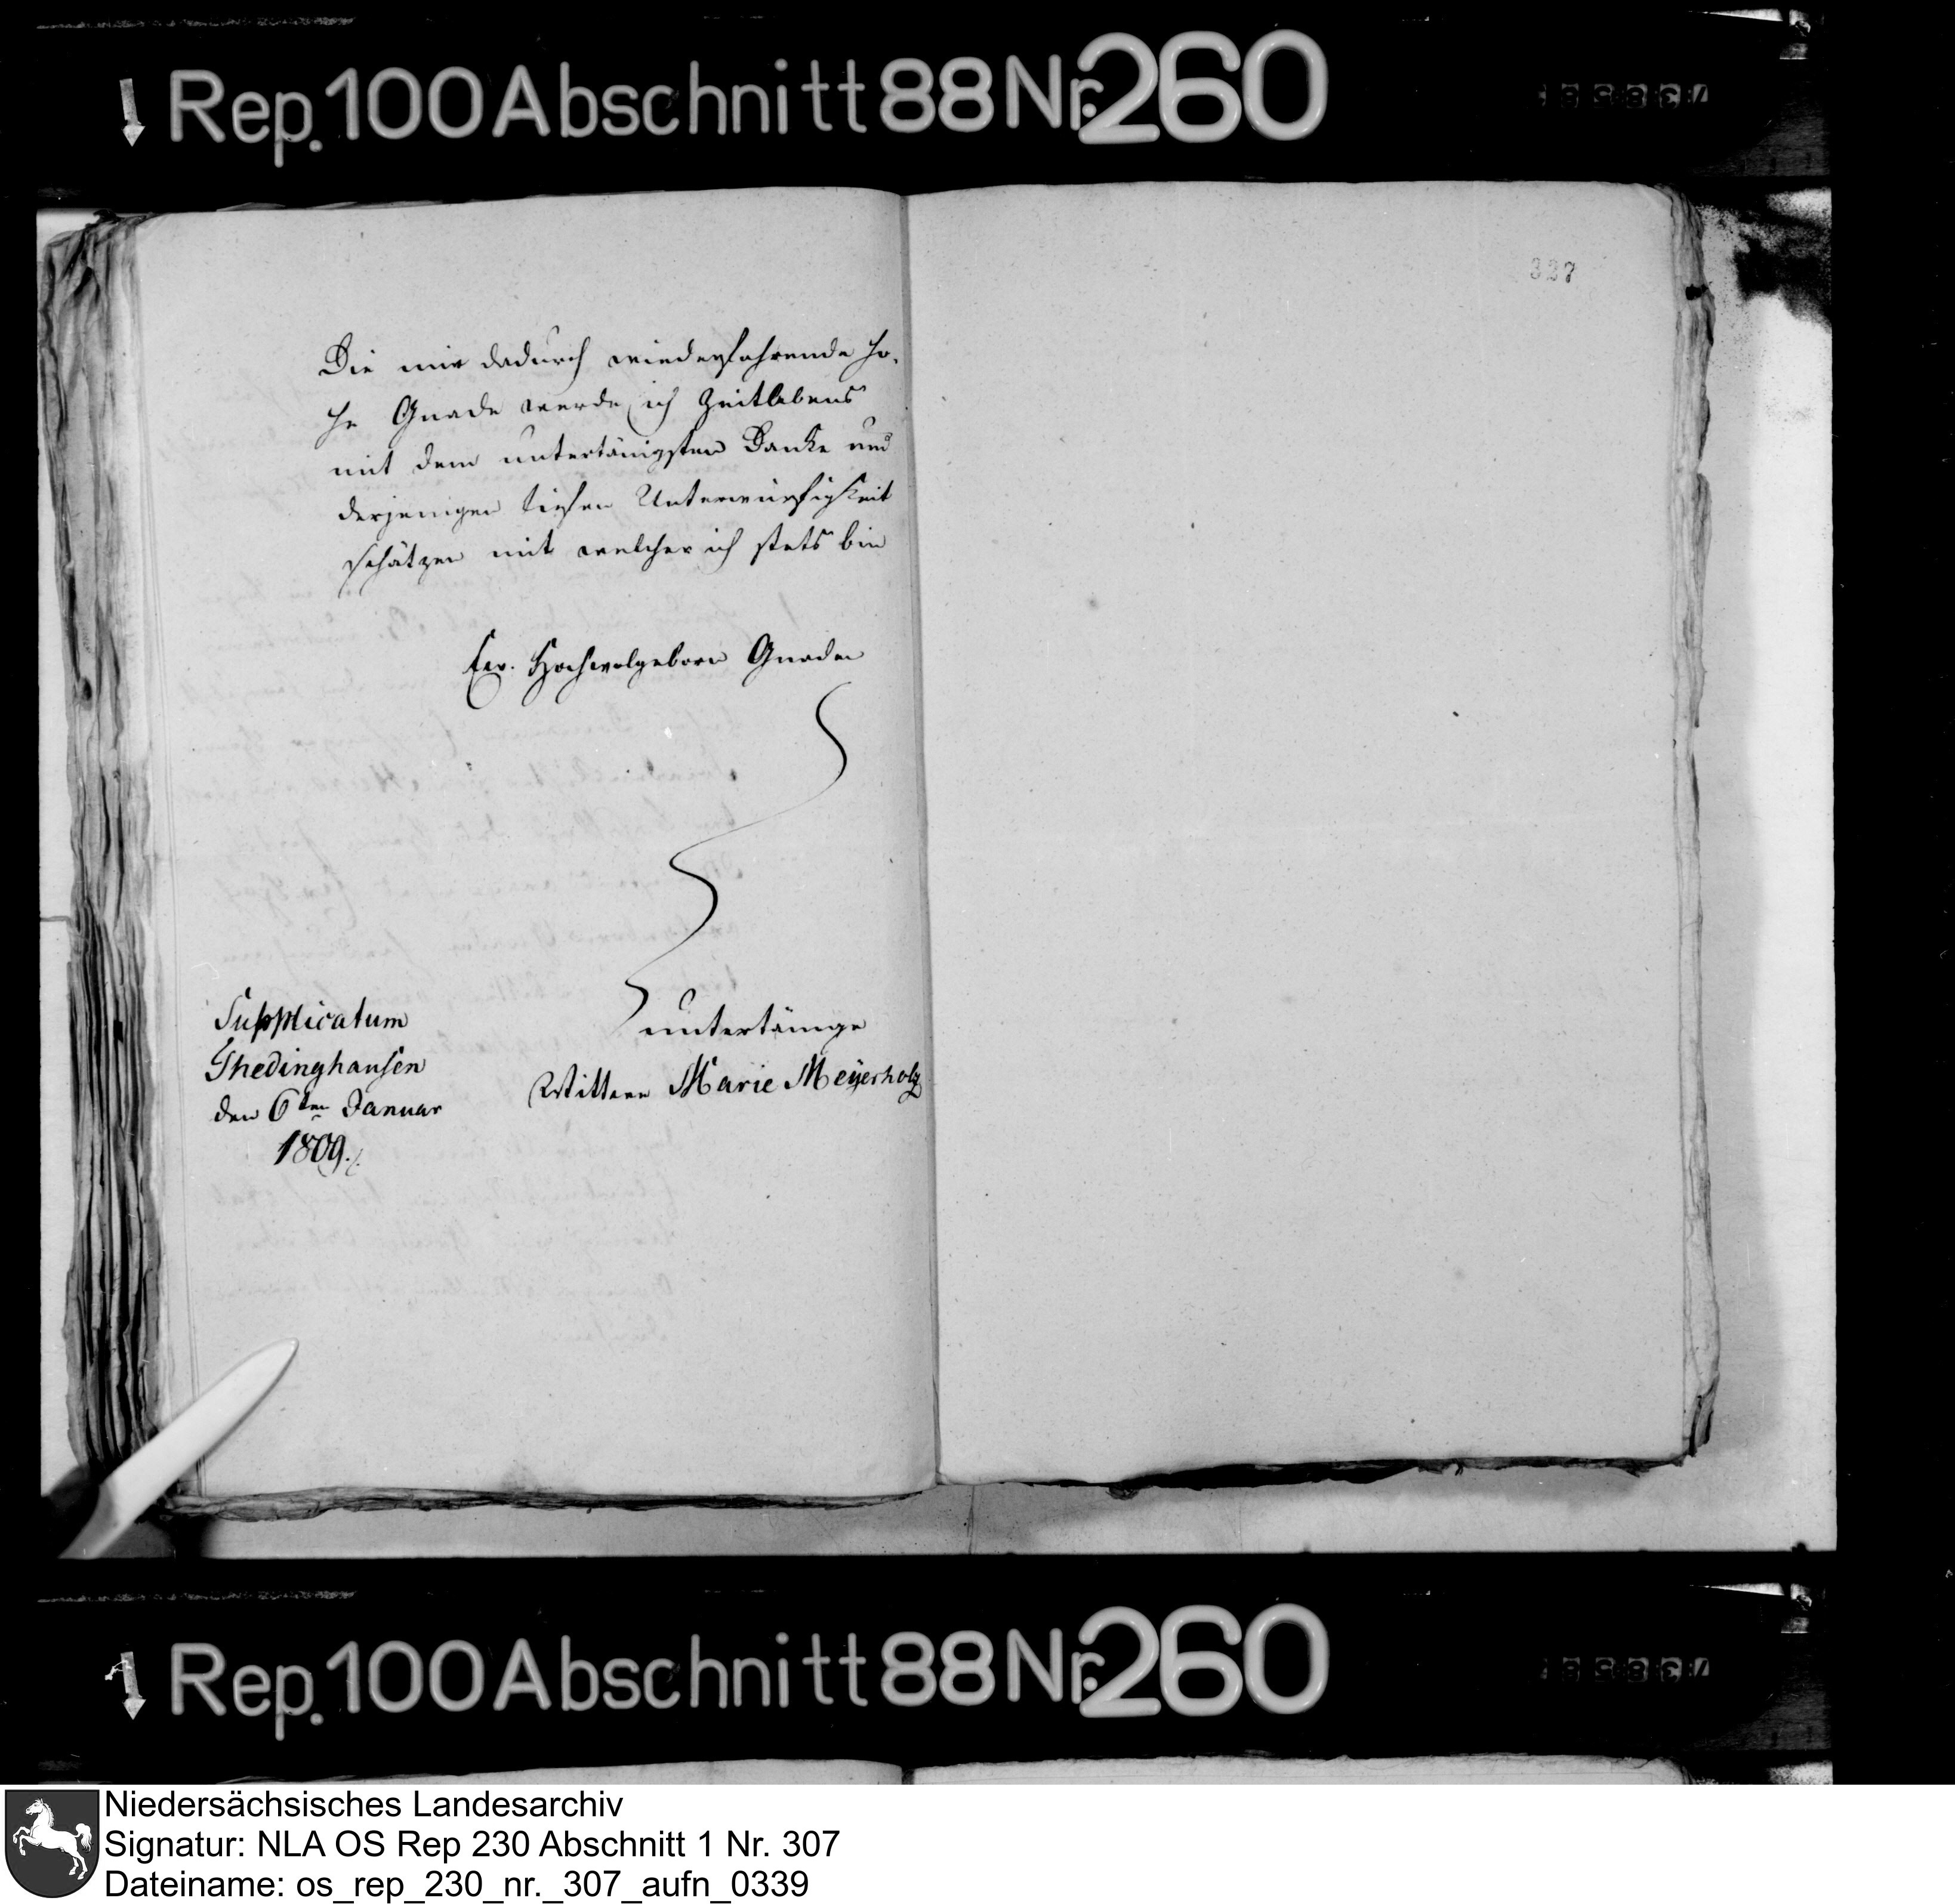 Rep. 100 Abschnitt 88 Nr. 260
337
Die mir dadurch wiederfahrende ho-
he Gnade werde ich Zeitlebens
mit dem untertänigsten Danke und
derjenigen tiefen Unterwürfigkeit
schätzen mit welcher ich stets bin
Ew. Hochwolgeborn Gnaden
Supplicatum
Thedinghausen
den 6ten Januar
1809.
untertänige
Wittwe Marie Meÿerholz
Rep. 100 Abschnitt 88 Nr. 260
Niedersächsisches Landesarchiv
Signatur: NLA OS Rep 230 Abschnitt 1 Nr. 307
Dateiname: os_rep_230_nr._307_aufn_0339